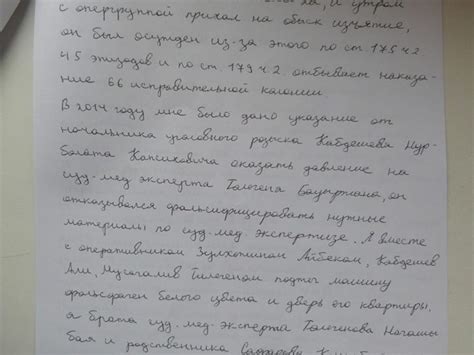 ха, и утром
с опергруппой приехал на обыск изъятие,
он был осужден из-за этого по ст. 175 ч 2
45 эпизодов и по ст. 179 ч. 2. отбывает наказа-
ние 66 исправительной колонии
В 2014 году мне было дано указание от
начальника уголовного розыска Кабдешева Нур-
болата Капсиховича оказать давление на
суд. мед эксперта Тюлегена Бауыржана, он
отказывался фальсифицировать нужные
материалы по суд. мед. экспертизе. А вместе
с оперативником Айбеком, Кабдешев
Али, Мусагалив Тюлегеном машину
фольсфаген белого цвета и дверь его квартиры,
а брата суд. мед. эксперта Тюлегенова
бая и родственника